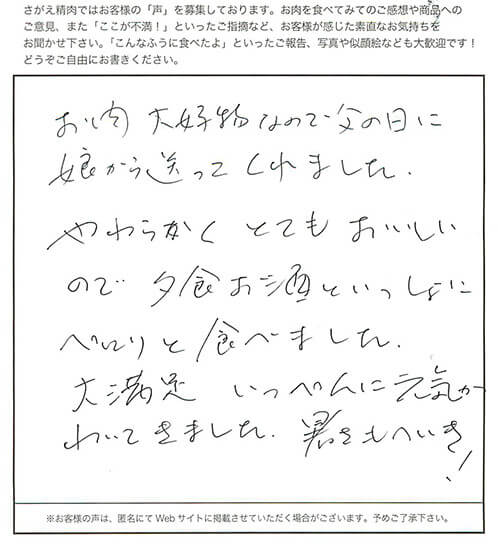 さがえ精肉ではお客様の「声」を募集しております。お肉を食べてみてのご感想や商品への
ご意見、また「ここが不満！」といったご指摘など、お客様が感じた素直なお気持ちを
お聞かせ下さい。「こんなふうに食べたよ」といったご報告、写真や似顔絵なども大歓迎です！
どうぞご自由にお書きください。
お肉 大好物なので父の日に
娘から送ってくれました。
やわらかく とても おいしい
ので 夕食お酒といっしょに
ペロリと食べました。
大満足 いっぺんに元気が
わいてきました。暑さもへいき！
※お客様の声は、匿名にてWebサイトに掲載させていただく場合がございます。予めご了承下さい。